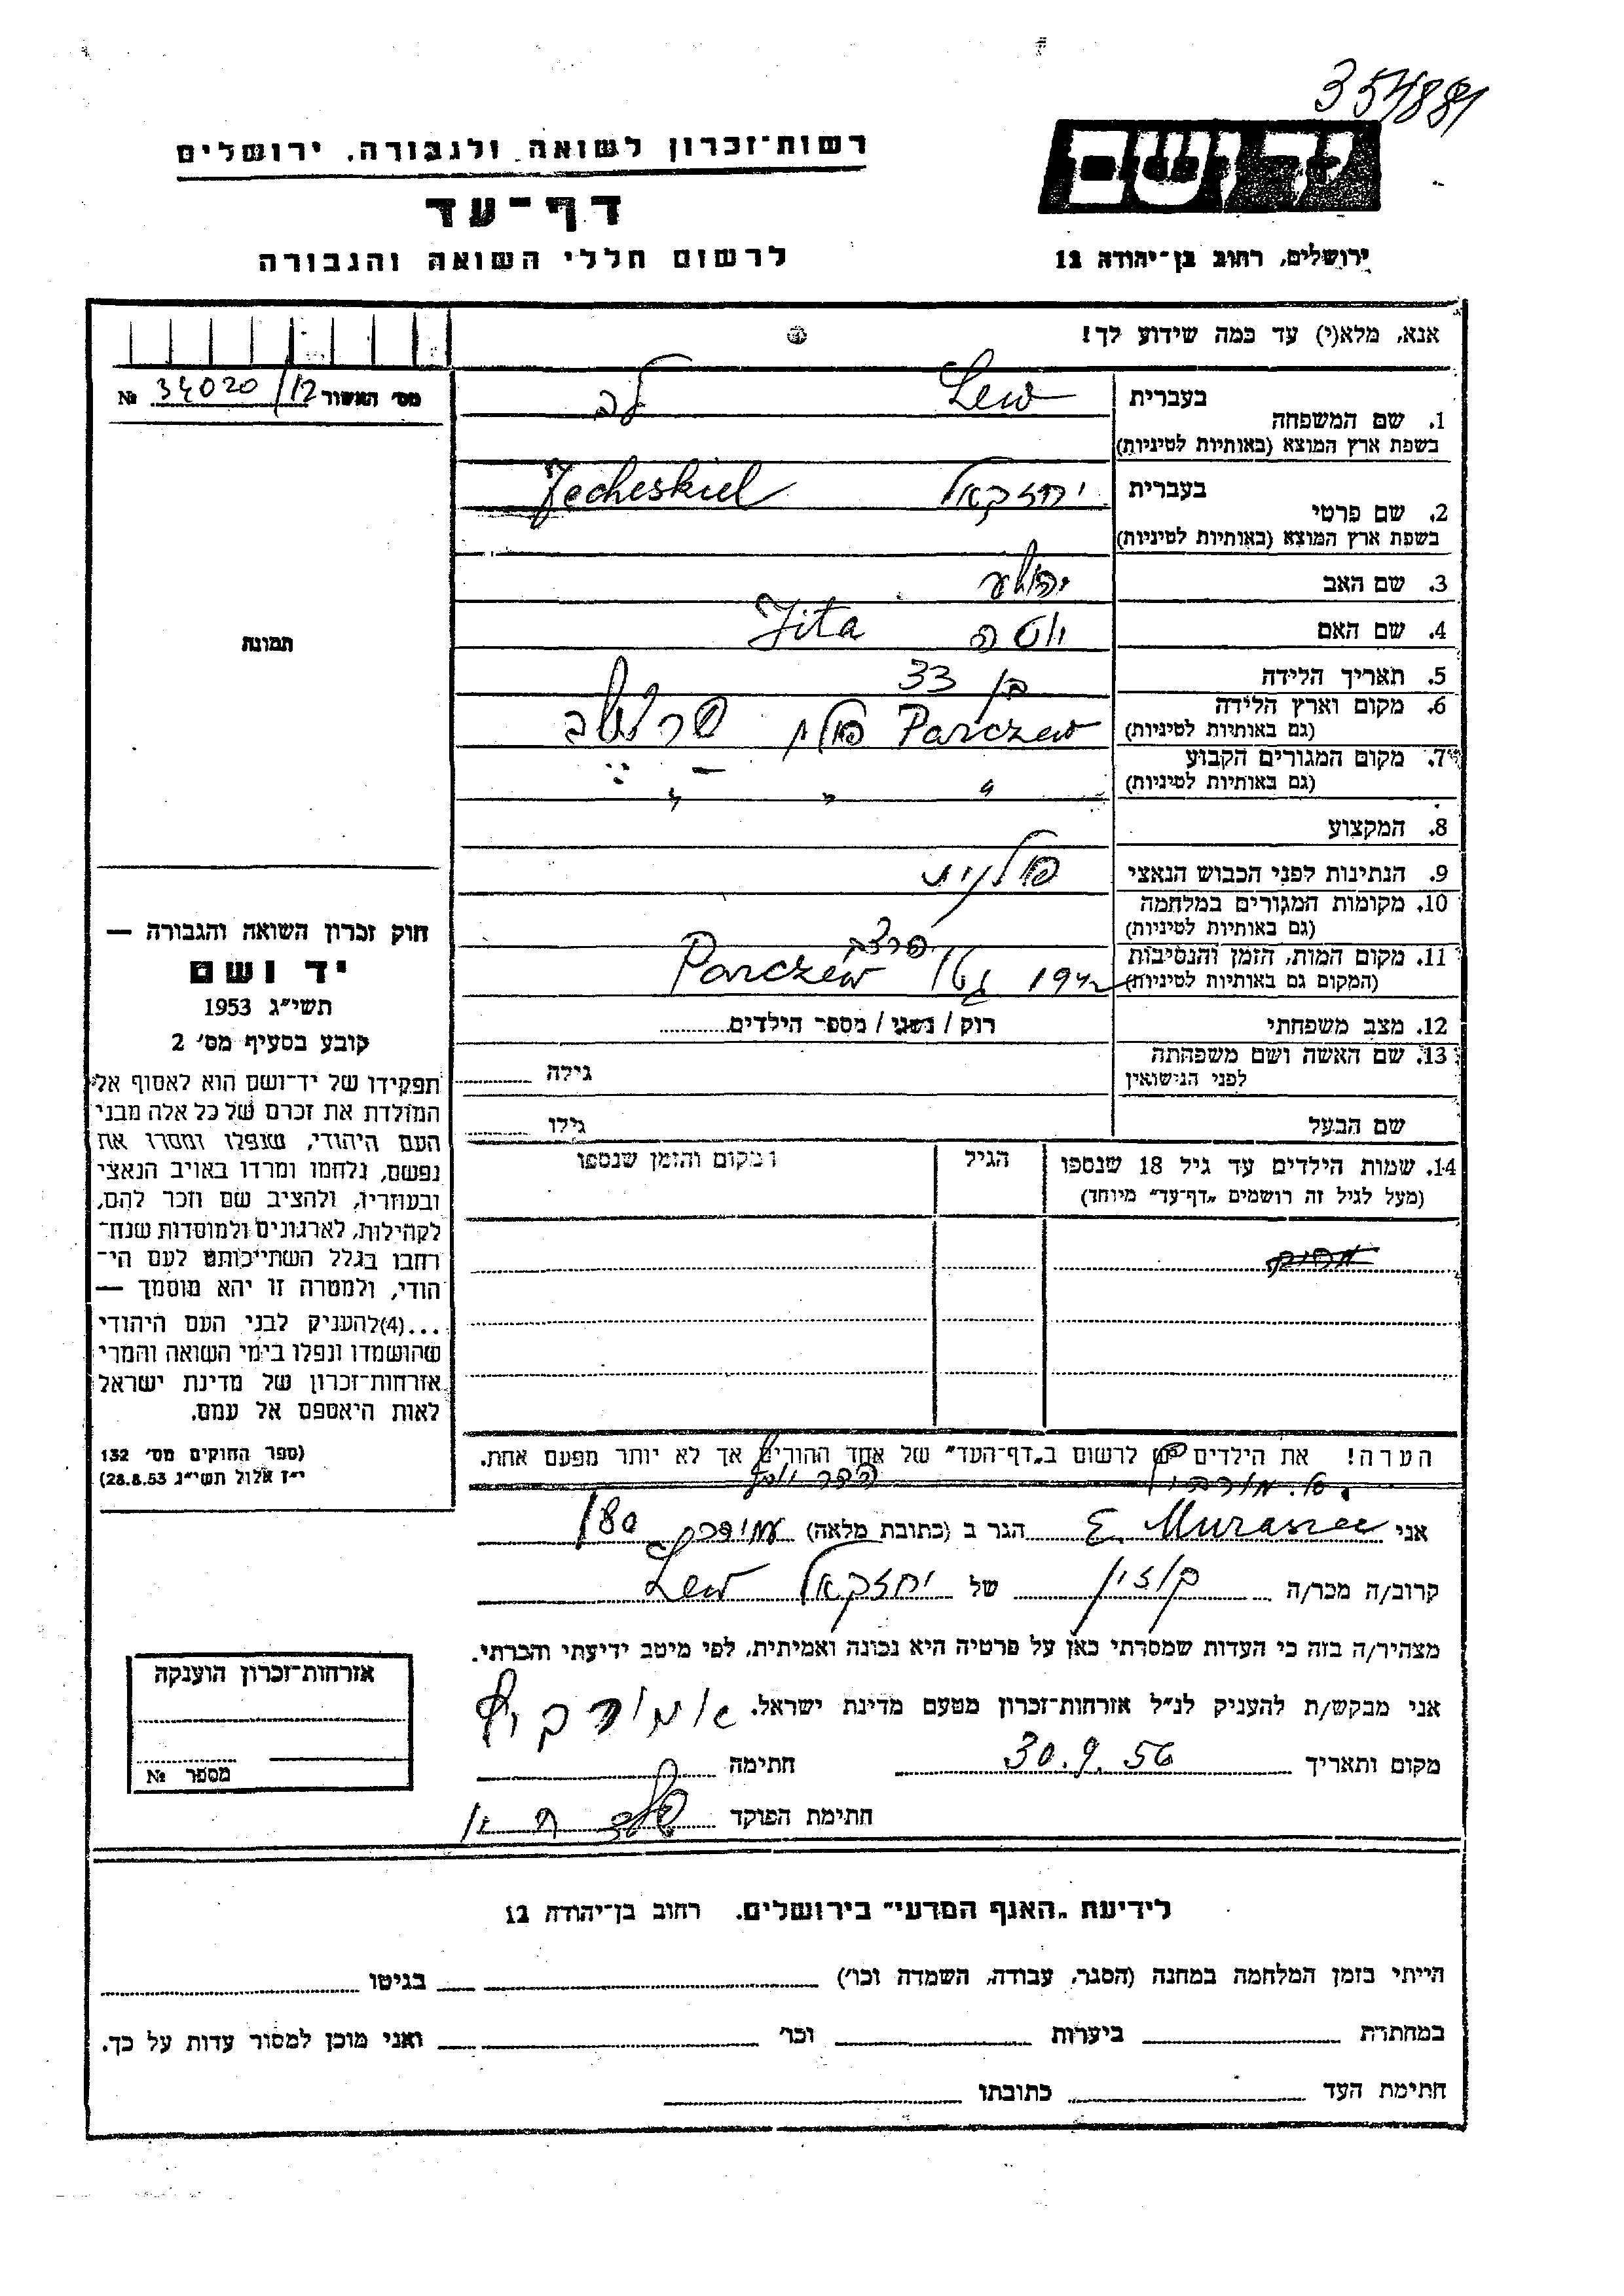 354881
יד ושם
רשות־זכרון לשואה ולגבורה, ירושלים
דף־עד
לרשום חללי השואה והגבורה
ירושלים, רחוב בן־יהודה 12
אנא, מלא(י) עד כמה שידוע לך!
מס׳ האשור 34020/12 №
תמונה
1. שם המשפחה
בעברית Lew לב
בשפת ארץ המוצא (באותיות לטיניות)
2. שם פרטי
בעברית יחזקאל Jecheskiel
בשפת ארץ המוצא (באותיות לטיניות)
3. שם האב יהושע
4. שם האם יוטה Jita
5. תאריך הלידה בן 33
6. מקום וארץ הלידה Parczew פולין
(גם באותיות לטיניות)
7. מקום המגורים הקבוע " " "
(גם באותיות לטיניות)
8. המקצוע
9. הנתינות לפני הכבוש הנאצי פולנית
10. מקומות המגורים במלחמה
(גם באותיות לטיניות)
11. מקום המות, הזמן והנסיבות פרצב
(המקום גם באותיות לטיניות) 1942 Parczew
12. מצב משפחתי רוק / נשוי / מספר הילדים
13. שם האשה ושם משפחתה
לפני הנישואין גילה
שם הבעל גילו
14. שמות הילדים עד גיל 18 שנספו הגיל המקום והזמן שנספו
(מעל לגיל זה רושמים „דף־עד״ מיוחד)
הערה! את הילדים יש לרשום ב„דף־העד״ של אחד ההורים אך לא יותר מפעם אחת.
אני E. הגר ב (כתובת מלאה) 180
קרוב/ה מכר/ה בן דוד של יחזקאל Lew
מצהיר/ה בזה כי העדות שמסרתי כאן על פרטיה היא נכונה ואמיתית, לפי מיטב ידיעתי והכרתי.
אני מבקש/ת להעניק לנ״ל אזרחות־זכרון מטעם מדינת ישראל.
מקום ותאריך 30.9.56 חתימה
חתימת הפוקד
חוק זכרון השואה והגבורה —
יד ושם
תשי״ג 1953
קובע בסעיף מס׳ 2
תפקידו של יד־ושם הוא לאסוף אל
המולדת את זכרם של כל אלה מבני
העם היהודי, שנפלו ומסרו את
נפשם, נלחמו ומרדו באויב הנאצי
ובעוזריו, ולהציב שם וזכר להם,
לקהילות, לארגונים ולמוסדות שנח־
רבו בגלל השתייכותם לעם הי־
הודי, ולמטרה זו יהא מוסמך —
...(4)להעניק לבני העם היהודי
שהושמדו ונפלו בימי השואה והמרי
אזרחות־זכרון של מדינת ישראל
לאות היאספם אל עמם.
(ספר החוקים מס׳ 132
י״ז אלול תשי״ג 28.8.53)
אזרחות־זכרון הוענקה
מספר №
לידיעת „האגף המדעי״ בירושלים. רחוב בן־יהודה 12
הייתי בזמן המלחמה במחנה (הסגר, עבודה, השמדה וכו׳) בגיטו
במחתרת ביערות וכו׳ ואני מוכן למסור עדות על כך.
חתימת העד כתובתו